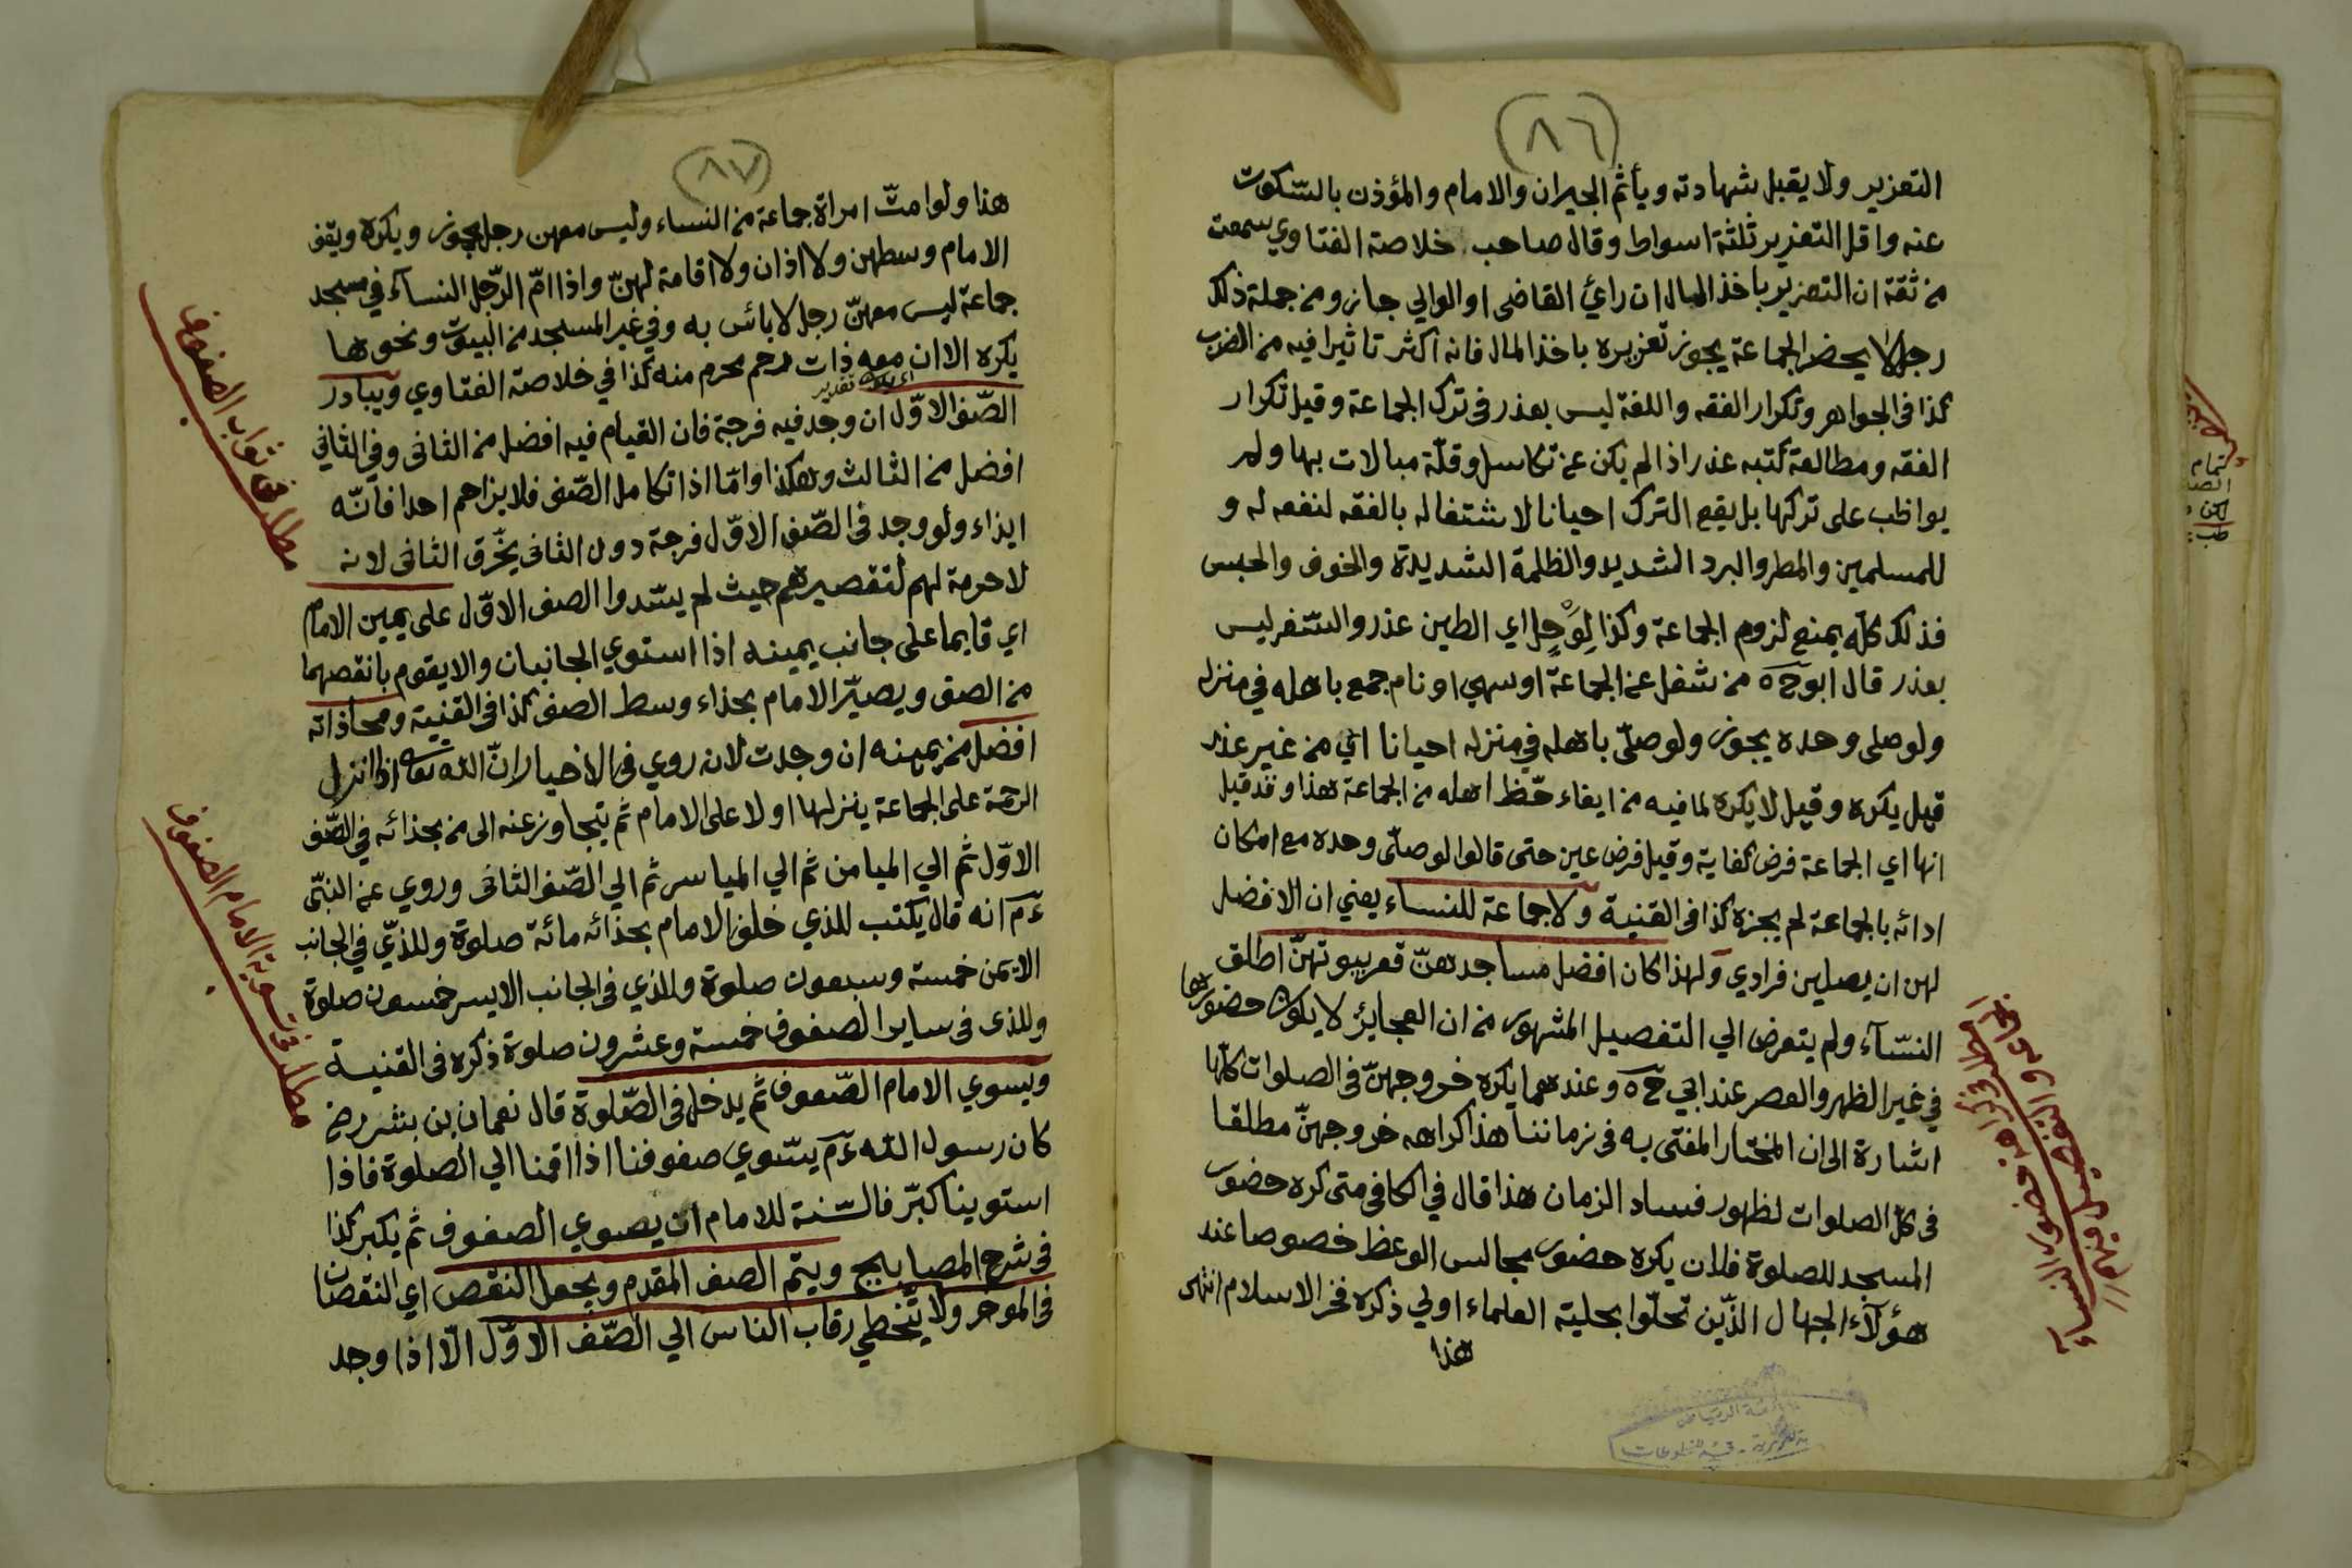 (٨٦)
التعزير ولا يقبل شهادته ويأثم الجيران والامام والمؤذن بالسّكوت
عنه واقل التعزير ثلثة اسواط وقال صاحب خلاصة الفتاوي سمعت
من ثقة ان التعزير باخذ المال ان رائ القاضى او الوالي جاز ومن جملة ذلك
رجل لا يحضر الجماعة يجوز تعزيره باخذ المال فانه اكثر تاثيرا فيه من الضرب
كذا فى الجواهر وتكرار الفقه واللغة ليس بعذر فى ترك الجماعة وقيل تكرار
الفقه ومطالعة كتبه عذر اذا لم يكن عن تكاسل وقلّة مبالات بها ولم
يواظب على تركها بل يقع الترك احيانا لاشتغاله بالفقه لنفعه له و
للمسلمين والمطر والبرد الشديد والظلمة الشديدة والخوف والحبس
فذلك كلّه يمنع لزوم الجماعة وكذا لِوَحِل اي الطين عذر والسّفر ليس
بعذر قال ابو ح ه من شغل عن الجماعة او سهي او نام جمع باهله في منزله
ولو صلى وحده يجوز ولو صلّى باهله في منزله احيانا اي من غير عذر
قيل يكره وقيل لا يكره لما فيه من ايفاء حّظ اهله من الجماعة هذا وقد قيل
انها اي الجماعة فرض كفاية وقيل فرض عين حتى قالوا لو صلّى وحده مع امكان
ادائه بالجماعة لم يجزه كذا فى القنية ولا جماعة للنساء يعني ان الافضل
لهن ان يصلين فرادي ولهذا كان افضل مساجدهنّ قعر بيوتهنّ اطلق
النسّآء ولم يتعرض الي التفصيل المشهور من ان العجايز لا يكره حضورها
في غير الظهر والعصر عند ابي ح ه وعندهما يكره خروجهنّ فى الصلوات كلّها
اشارة الى ان المختار المفتى به فى زماننا هذا كراهه خروجهنّ مطلقا
فى كلّ الصلوات لظهور فساد الزمان هذا قال في الكافى متى كره حضور
المسجد للصلوة فلان يكره حضور مجالس الوعظ خصوصا عند
هؤلآء الجهال الذّين تحلّوا بحلية العلماء اولي ذكره فخر الاسلام انتهى
هذا
(٨٧)
هذا ولو امتّ امراة جماعة من النساء وليس معهن رجل يجوز ويكره ويقف
الامام وسطهن ولا اذان ولا اقامة لهنّ واذا امّ الرّجل النسآء في مسجد
جماعة ليس معهنّ رجل لا بائس به وفي غير المسجد من البيوت ونحوها
يكره الا ان معه ذات رحم محرم منه كذا في خلاصة الفتاوي ويبادر
الصّف الاوّل ان وجد فيه فرجة فان القيام فيه افضل من الثانى وفي الثانى
افضل من الثالث وهكذا وامّا اذا تكامل الصّف فلا يزاحم احدا فانّه
ايذاء ولو وجد فى الصّف الاوّل فرجة دون الثانى يخّرق الثانى لانه
لا حرمة لهم لتقصيرهم حيث لم يسّدوا الصف الاوّل على يمين الامام
اي قايما على جانب يمينه اذا استوي الجانبان والا يقوم بانقصهما
من الصف ويصيّر الامام بحذاء وسط الصف كذا فى القنية ومحاذاته
افضل من يمينه ان وجدت لانه روي فى الاخبار انّ الله تعالى اذا انزل
الرحمة على الجماعة ينزلها اولا على الامام ثم يتجاوز عنه الى من بحذائه في الصّف
الاوّل ثم الي الميامن ثم الي المياسر ثم الي الصّف الثانى وروي عن النبّى
عٓم انه قال يكتب للذي خلف الامام بحذائه مائة صلوة وللذّي في الجانب
الايمن خمسة وسبعون صلوة وللذي فى الجانب الايسر خمسون صلوة
وللذى فى ساير الصفوف خمسة وعشرون صلوة ذكره فى القنية
ويسوي الامام الصّفوف ثم يدخل فى الصّلوة قال نعمان بن بشر رض
كان رسول الله عٓم يسّوي صفوفنا اذا اقمنا الي الصلوة فاذا
استوينا كبّر فالسّنة للامام ان يصوي الصفوف ثم يكبر كذا
فى شرح المصابيح ويتم الصف المقدم ويجعل النقص اي النقصان
فى الموخر ولا يتخطي رقاب الناس الي الصّف الاوّل الّا اذا وجد
مطلب فى ثواب الصفوف
مطلب فى تسوية الامام الصفوف
مطلب فى كراهة حضور النسآء